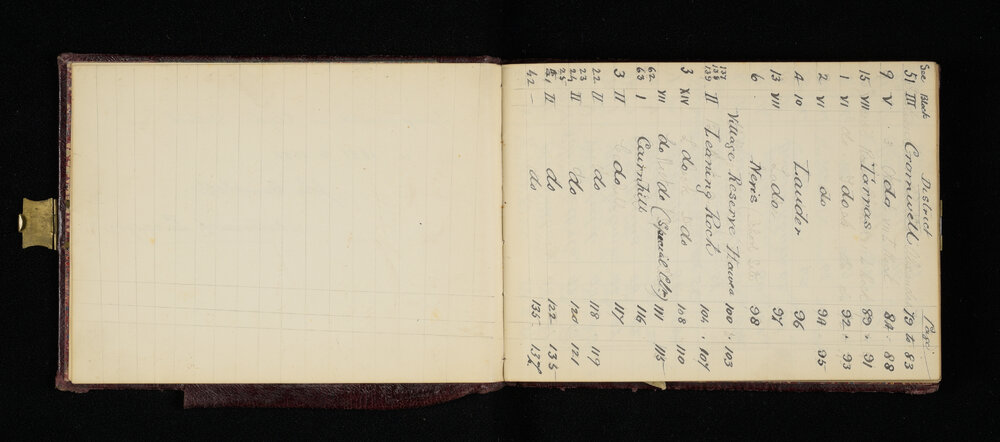 Sec Block District Page
51 III Cromwell 79 to 83
9 V do 84 . 88
15 VII Tarras 89 . 91
1 VI do 92 . 93
2 VI do 94 95
4 10 Lauder 96
13 VII do 97
6 Nevis 98
Village Reserve Hawea 100 . 103
137 138 139 II Leaning Rock 104 . 107
3 XIV do do 108 110
62 XII do do (Special Clm) 111 115
63 I Cairnhill 116
3 II do 117
22 II do 118 119
23 24 II do 120 121
25 II do 122 135
42 — do 135 — 137